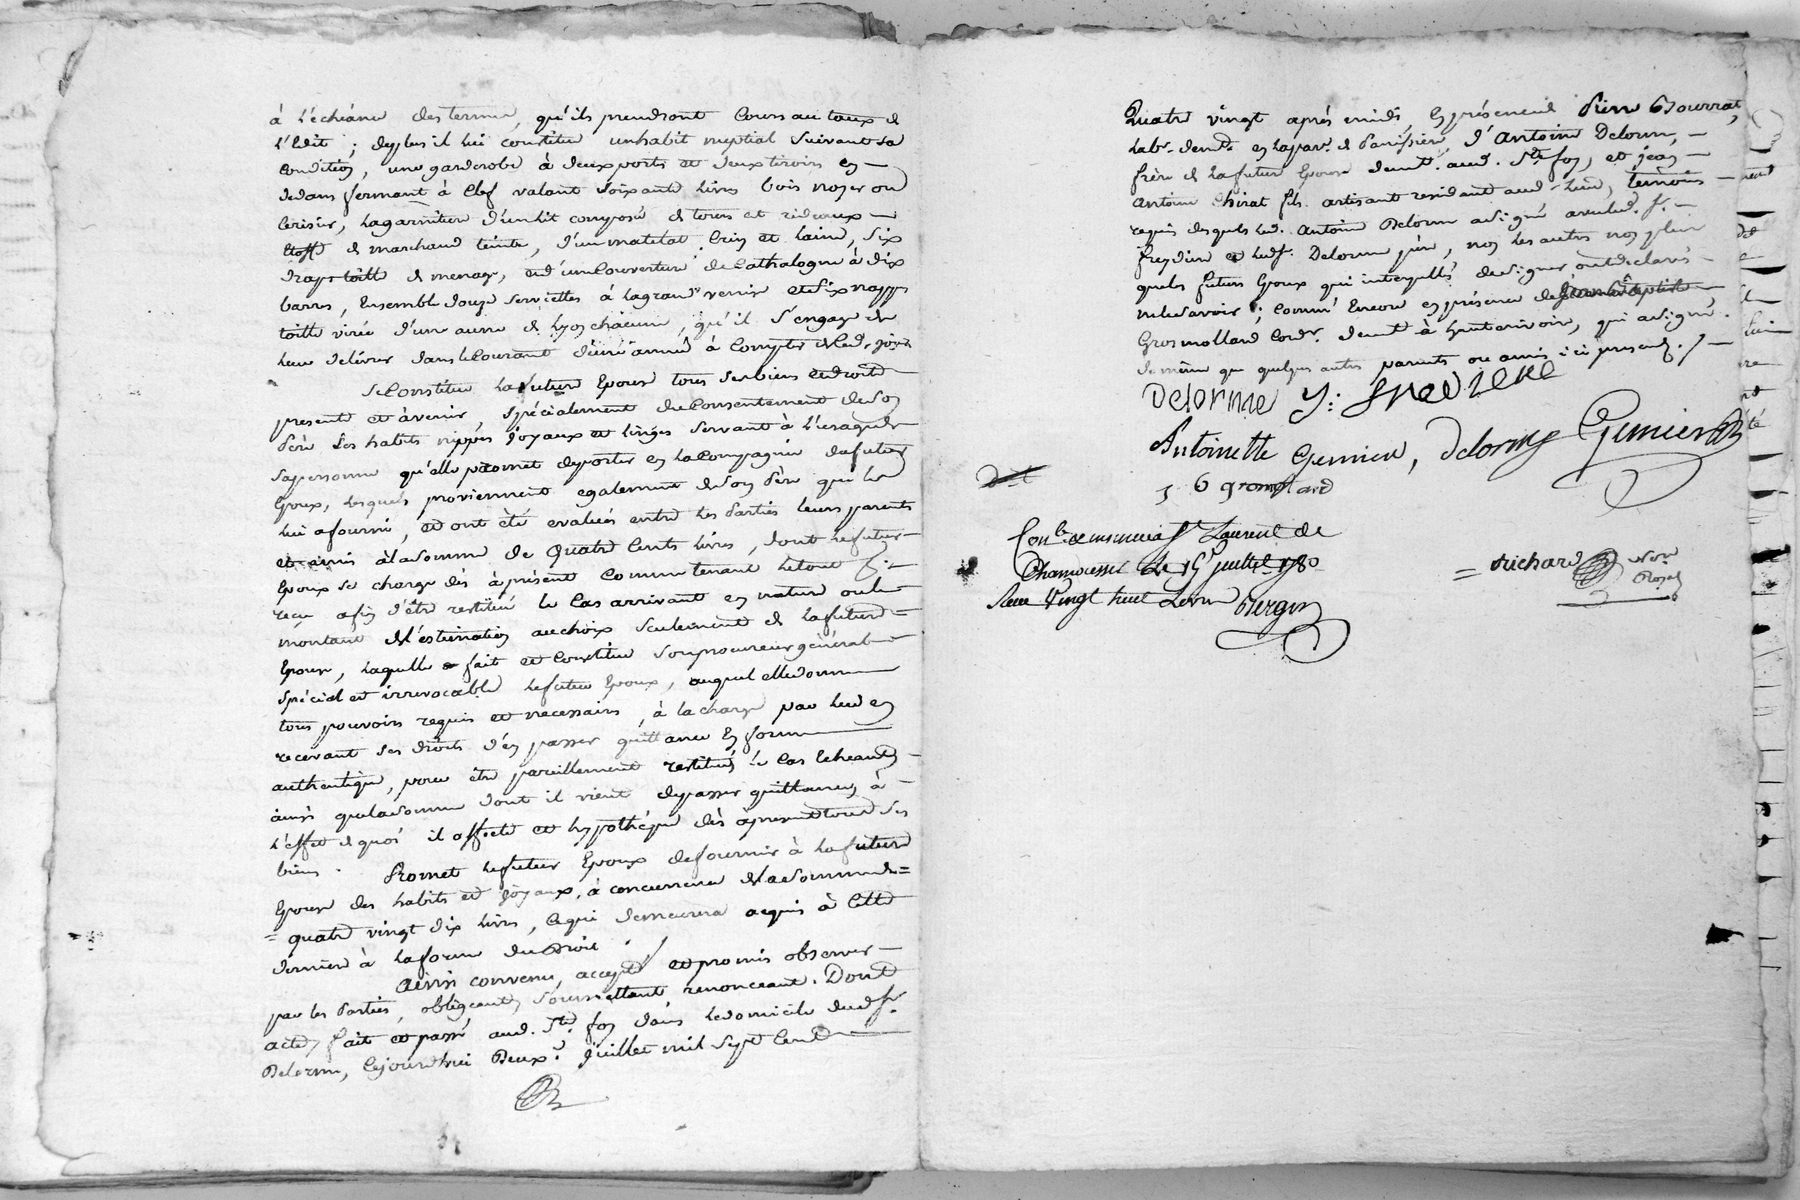 à l'échéance des termes, qu'ils prendront cours au taux de
l'Edit ; de plus il lui constitue un habit nuptial suivant sa
condition, une garderobe à deux ports et deux tiroirs en
dedans fermant à clef valant soixante livres bois noyer ou
cerisier, la garniture d'un lit composé de tours et rideaux
étoffe de marchand teinte, d'un matelat crin et laine, six
draps toille de menage, et d'une couverture de Cathalogne à dix
barres, Ensemble douze serviettes à la grand venise et six napps
toille virée d'une aune de Lyon chacune, qu'il s'engage de
leur delivrer dans le courant d'une année à compter de ced. jour
Se Constitue la future Epouse tous ses biens et droits
presents et à venir spécialement du consentement de son
Père ses habits nippes joyaux et linges servant à l'usage de
sa personne qu'elle promet de porter en la compagnie du futur
Epoux, lesquels proviennent egalement de son Père qui les
lui a fourni, et ont été evalués entre les Parties leurs parents
et amis à la somme de quatre cents livres, dont le futur
Epoux se charge dès à présent comme tenant le tout p.
reçu afin d'être restitué le cas arrivant en nature ou le
montant de l'estimation au choix seulement de la future
Epouse, laquelle fait et constitue son procureur général
spécial et irrevocable le futur Epoux, auquel elle donne
tous pouvoirs requis et necessaires, à la charge par lui en
recevant ses droits d'en passer quittance en forme
authentique, pour être pareillement restitués le cas echeant
ainsi que la somme dont il vient de passer quittance, à
l'effet de quoi il affecte et hypothéque dès à present tous ses
biens. Promet le futur Epoux de fournir à la future
Epouse des habits et joyaux, à concurrence de la somme de =
= quatre vingt dix livres, ce qui demeurera acquis à cette
dernière à la forme du droit.
Ainsi convenu, accepté et promis observer
par les Parties, obligeant, soumettant, renonceant. Dont
acte, fait et passé aud. Ste foy dans le domicile dud. Sr.
Delorme, cejourd'hui Deux.e Juillet mil sept cent
Quatre vingt après midi, En présence de Pierre Bourrat,
Labr. demt. en la par. de Panissiere, d'Antoine Delorme,
frère de la future Epouse demt. aud. Ste foy, et Jean
Antoine Chirat fils artisant residant aud. lieu, témoins
requis desquels led. Antoine Delorme a signé avec led. Sr.
freydiere et led. Sr. Delorme père, non les autres non plus
quels futurs Epoux qui interpellés de signer ont declarés
ne le savoir ; comme Encore en présence de Jean Baptiste
Grosmollard Cord.r demt. à hauterivoire, qui a signé
de même que quelques autres parents ou amis ici presents.
Delorme J: fredière
Antoinette Gemier, Delorme Gemier
J B gromolard
Con.lé et insinué a St Laurent de
Chamousset Le 15 juillet 1780
Reçu Vingt huit Livres Bergon
= Richard Not.re
Royal